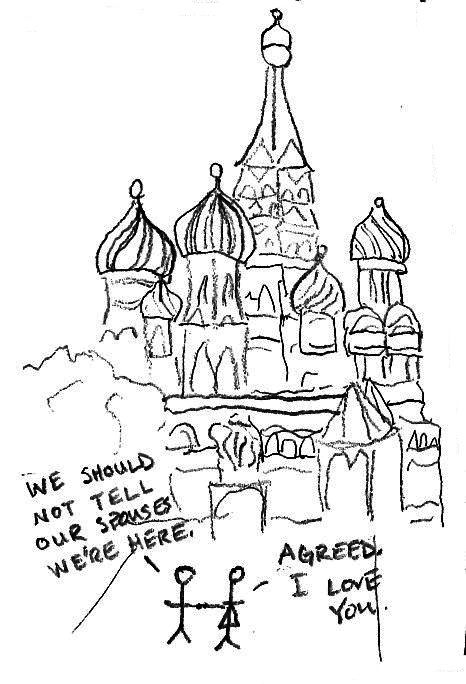 WE SHOULD
NOT TELL
OUR SPOUSES
WE'RE HERE.
AGREED.
I LOVE
YOU.